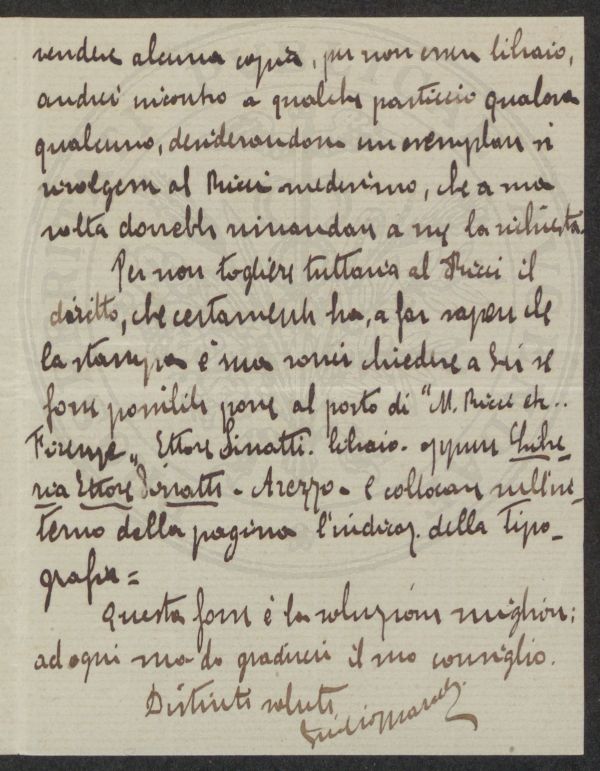 vendere alcuna copia, per non essere libraio,
andrei incontro a qualche pasticcio qualora
qualcuno, desiderandone un esemplare si
rivolgesse al Ricci medesimo, che a sua
volta dovrebbe rimandare a me la richiesta.
Per non togliere tuttavia al Ricci il
diritto, che certamente ha, a far sapere che
la stampa è sua vorrei chiedere a Lei se
fosse possibile porre al posto di "M. Ricci etc..
Firenze" Ettore Sinatti. libraio. oppure Libre-
ria Ettore Sinatti - Arezzo - e collocare nell'in-
terno della pagina l'indicaz. della tipo-
grafia =
Questa forse è la soluzione migliore;
ad ogni modo gradirei il suo consiglio.
Distinti saluti